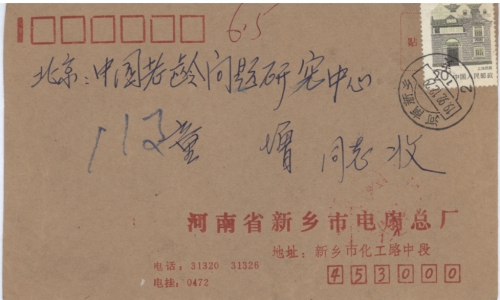 6.5
贴
中国人民邮政
河南新乡
北京：中国老龄问题研究中心
董 增 同志收
河南省新乡市电池总厂
地址：新乡市化工路中段
电话：31320 31326
电挂：0472
453000